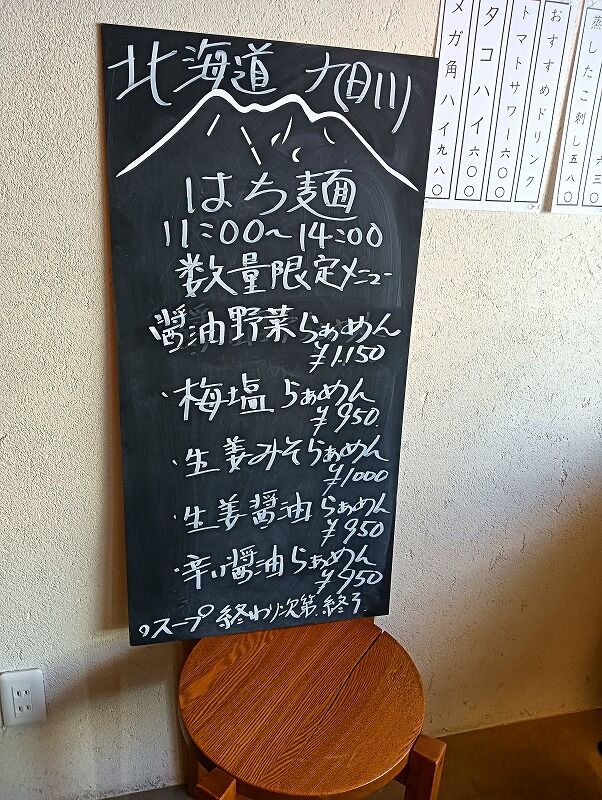 北海道 旭川
はち麺
11:00〜14:00
数量限定メニュー
醤油野菜らぁめん
¥1.150
・梅塩らぁめん
¥950.
・生姜みそらぁめん
¥1000
・生姜醤油らぁめん
¥950
・辛い醤油らぁめん
¥950
スープ終わり次第終了.
蒸したこ刺し五八〇
おすすめドリンク
トマトサワー六〇〇
タコハイ六〇〇
メガ角ハイ九八〇